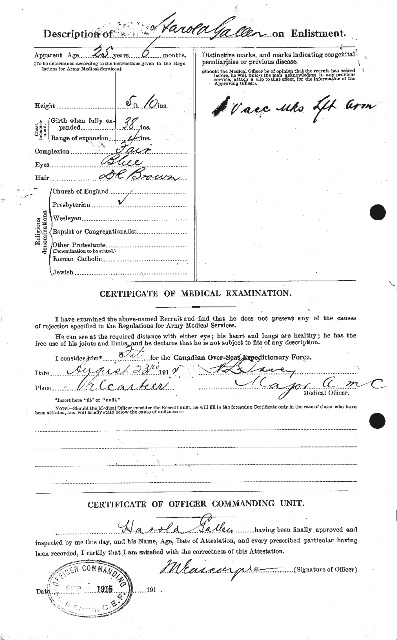 Description of Harold Gallen on Enlistment.
Apparent Age 25 years 6 months.
(To be determined according to the instructions given in the Regulations for Army Medical Services.)
Height 5 ft. 10 ins.
Girth when fully expanded 38 ins.
Range of expansion 4 ins.
Complexion Fair
Eyes Blue
Hair Dk Brown
Religious denominations
Church of England
Presbyterian ✓
Wesleyan
Baptist or Congregationalist
Other Protestants
(Denomination to be stated.)
Roman Catholic
Jewish
Distinctive marks, and marks indicating congenital
peculiarities or previous disease.
(Should the Medical Officer be of opinion that the recruit has served before, he will, unless the man acknowledges to any previous service, attach a slip to that effect, for the information of the Approving Officer).
1 Vacc mks Lft arm
CERTIFICATE OF MEDICAL EXAMINATION.
I have examined the above-named Recruit and find that he does not present any of the causes
of rejection specified in the Regulations for Army Medical Services.
He can see at the required distance with either eye; his heart and lungs are healthy; he has the
free use of his joints and limbs, and he declares that he is not subject to fits of any description.
I consider him* Fit for the Canadian Over-Seas Expeditionary Force.
Date August 191
Place Valcartier Major A M C
Medical Officer.
*Insert here "fit" or "unfit."
NOTE.—Should the Medical Officer consider the Recruit unfit, he will fill in the foregoing Certificate only in the case of those who have
been attested, and will briefly state below the cause of unfitness:—
CERTIFICATE OF OFFICER COMMANDING UNIT.
Harold Gallen having been finally approved and
inspected by me this day, and his Name, Age, Date of Attestation, and every prescribed particular having
been recorded, I certify that I am satisfied with the correctness of this Attestation.
(Signature of Officer)
OFFICER COMMANDING
Date 191
C.E.F.